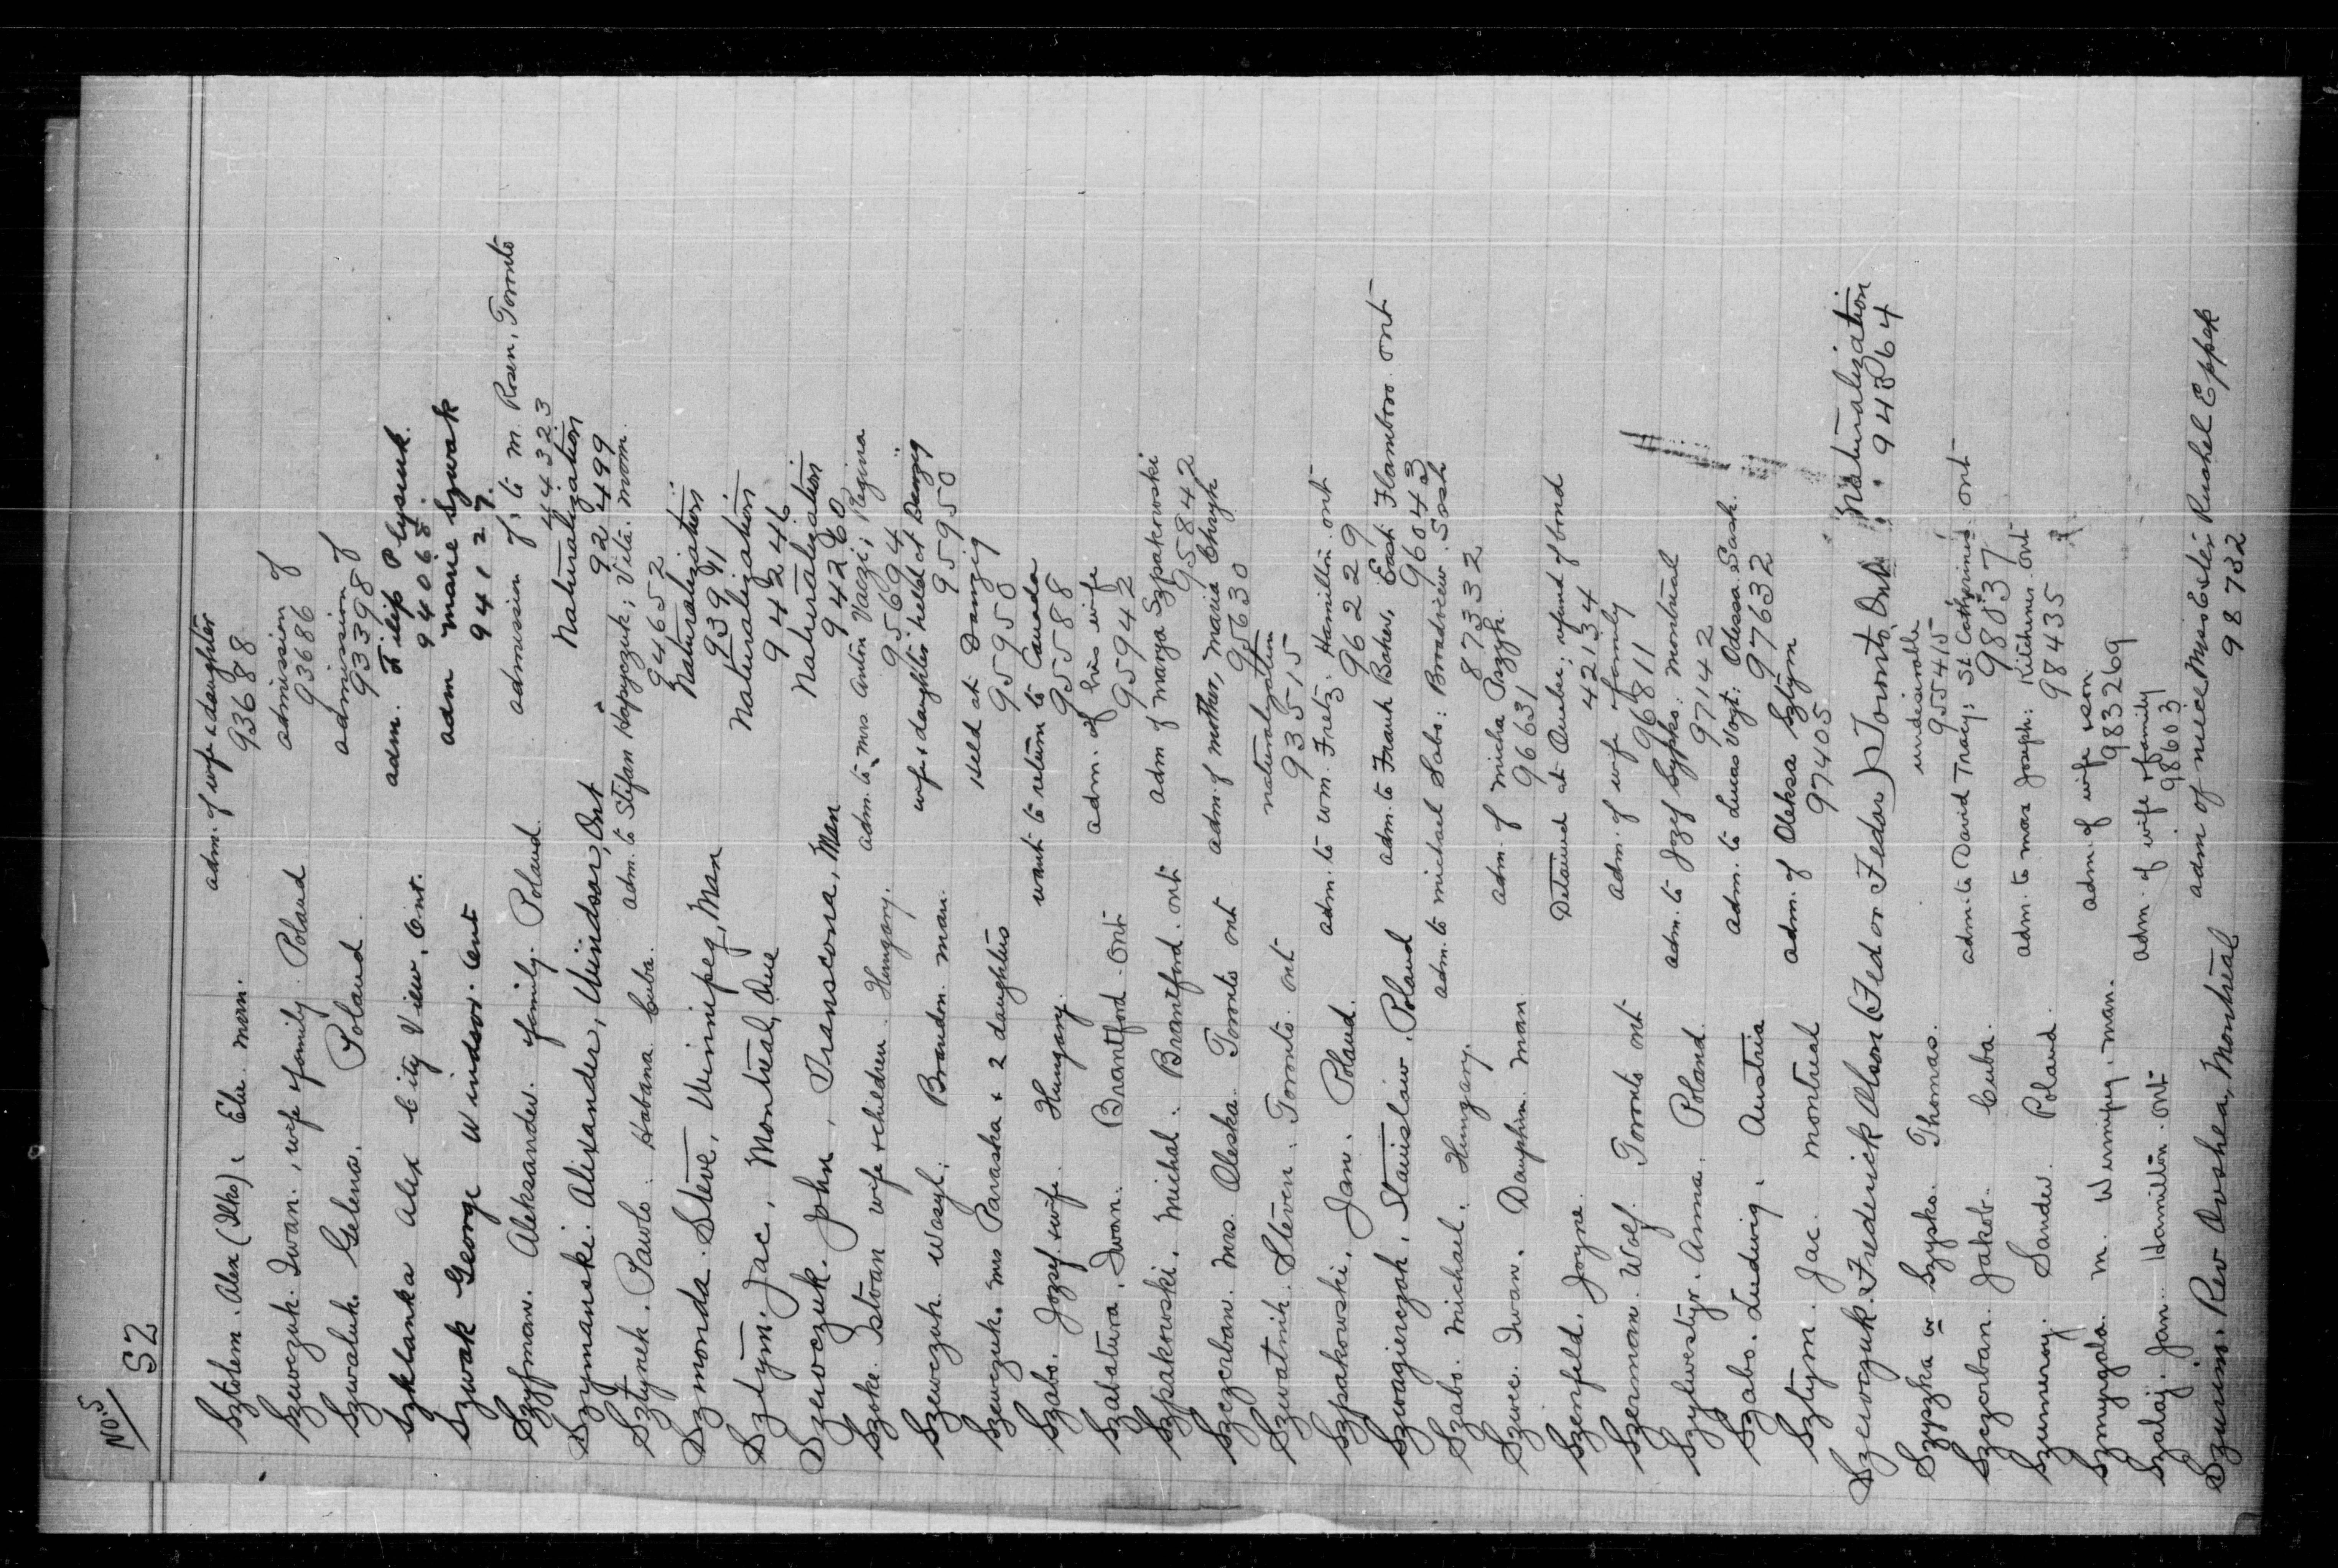 No. 5
SZ
Sztohem. Alex (Ilko). Elie. man. adm. of wife & daughter
93688
Szewczuk. Iwan., wife & family. Poland admission of
93686
Szwaluk. Gelena. Poland. admission of
933980
Szklanka Alex City View, Ont. adm. Filip Plysiuk.
94065
Szwak George Windsor. Ont adm Marie Szwak
94127.
Szyfman. Aleksander. family. Poland. admission of, to M. Rosen, Toronto
444323
Szymanski. Alixander, Windsor, Ont Naturalization
92499
Sztynek. Pawlo. Habana Cuba. adm. to Stefan Hapyczuk; Vita. man.
94652
Szmonda. Steve, Winnipeg, Man Naturalization
93991
Sztym. Jac, Montreal, Que Naturalization
94246
Szewczuk. John, Transcona, Man Naturalization
94260
Szoke. Istvan wife & children. Hungary. adm. to Mrs Anton Vaczi; Regina
95694
Szewczuk Wasyl. Brandon. man. wife & daughter held at Danzig
95950
Szewczuk. Mrs Paraska & 2 daughters Held at Danzig
95950
Szabo. Jozsef. wife. Hungary. want to return to Canada
95588
Szabatura. Iwan. Brantford. Ont adm. of his wife
95942
Szpakowski. Michal. Brantford. ont adm of Marya Szpakowski
95842
Szczerban. Mrs. Oleska. Toronto ont adm. of mother, Maria Chryk
95630
Szwatnik. Steven. Toronto. ont naturalization
93515
Szpakowski. Jan. Poland. adm. to Wm. Fretz. Hamilton. ont
96229
Szwagierczak. Stanislaw. Poland adm. to Frank Baker, East Flamboro. ont
96043
Szabo. Michael. Hungary. adm. to Michael Sabo: Broadview. Sask
87332
Szwec. Iwan. Dauphin. man adm. of Micha Pszyk.
96631
Szenfeld. Joyne. Detained at Quebec; refund of bond
42134
Szerman. Wolf. Toronto ont adm. of wife & family
96811
Szylwestyr. Anna. Poland. adm. to Jozef Sypko. Montreal
97142
Szabo. Ludwig. Austria adm. to Lucas Vogt: Odessa. Sask.
97632
Sztym. Jac. Montreal adm. of Oleksa Sztym
97405
Szewczuk. Frederick Olson (Fedor Fedor) Toronto, Ont. Naturalization
94364
Szypzka or Szysko. Thomas. undesirable
95415
Szczerban. Jakob. Cuba. adm. to David Tracy: St Catharines ont
98037
Szumeray. Sandor. Poland. adm. to Max Joseph: Kitchener. ont
98435
Szmyrgala. M. Winnipeg. man. adm. of wife & son
983269
Szalaj. Jan. Hamilton. ont adm. of wife & family
98603
Szusim. Rev Ovshea, Montreal adm of niece Miss Ester Rushel Eppek
98732